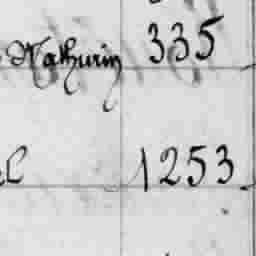 Mathurin 335
1253